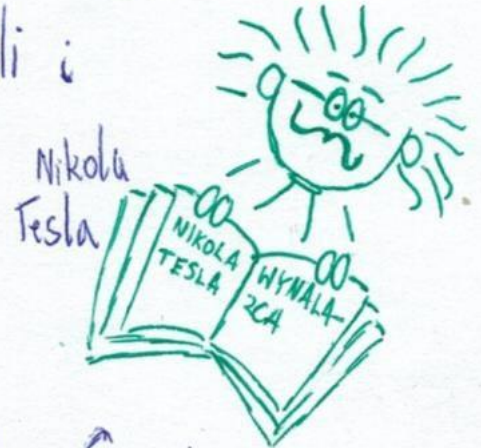 li i
Nikola
Tesla
NIKOLA
TESLA
WYNALA-
ZCA